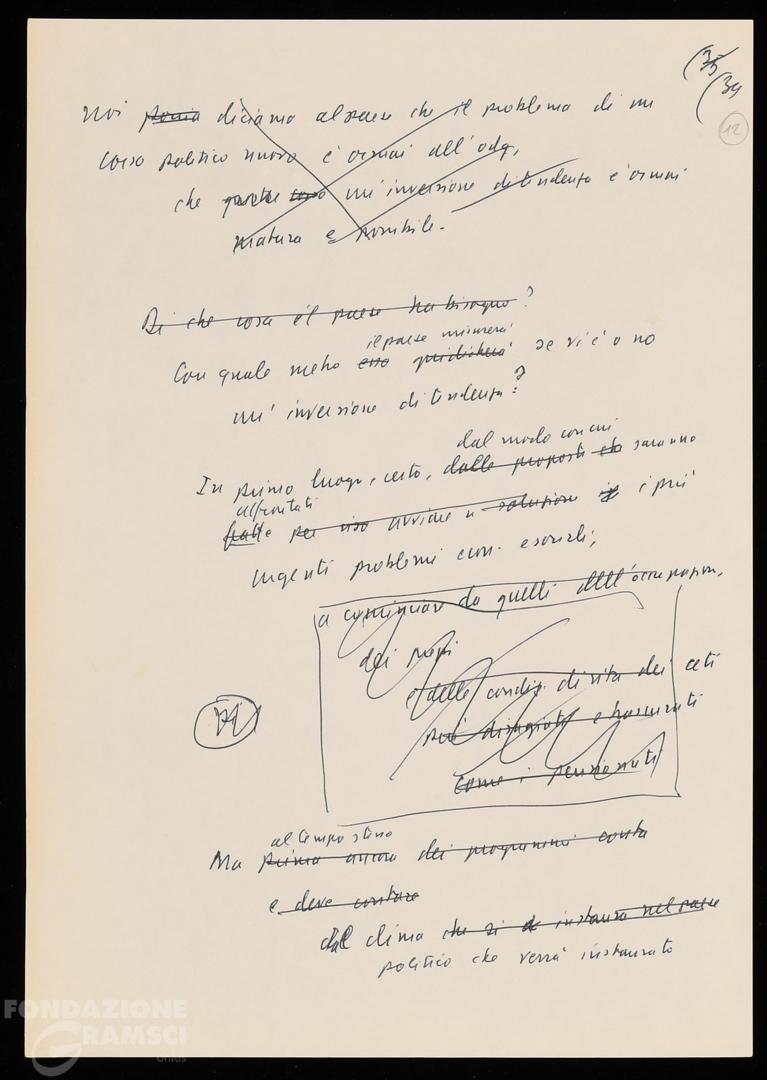 (35
(34
12
Noi poria diciamo al paese che il problema di un
corso politico nuovo è ormai all'odg,
che questa corso un'inversione di tendenza è ormai
matura e possibile.
Di che cosa il paese ha bisogno?
il paese misurerà
Con quale metro esso giudicherà se vi è o no
un'inversione di tendenza?
dal modo con cui
In primo luogo, certo, dalle proposte che saranno
affrontati
fatte per avviare a soluzione i più
urgenti problemi econ. e sociali,
a cominciare da quelli dell'occupazion,
dei prezzi
e delle condiz. di vita dei ceti
più disagiati e trascurati
come i pensionati
Ma al tempo stesso
prima ancora dei programmi conta
e deve contare
dal clima che si instaura nel paese
politico che verrà instaurato
FONDAZIONE
GRAMSCI
onlus